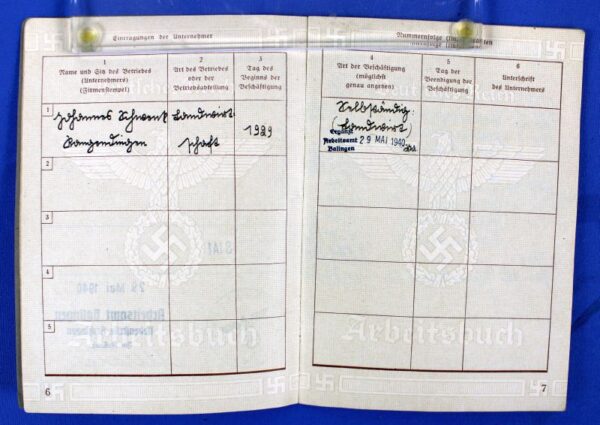 Eintragungen der Unternehmer
1
Name und Sitz des Betriebes
(Unternehmers)
(Firmenstempel)
2
Art des Betriebes
oder der
Betriebsabteilung
3
Tag des
Beginns der
Beschäftigung
1
Johannes Schwenk
Landwirt-
1929
Rangendingen
schaft
2
3
4
5
6
4
Art der Beschäftigung
(möglichst
genau angeben)
5
Tag der
Beendigung der
Beschäftigung
6
Unterschrift
des Unternehmers
Selbständig.
(Landwirt)
Ergänzt
Arbeitsamt 29 MAI 1940
Balingen
Arbeitsbuch
7
29 Mai 1940
Arbeitsamt Balingen
Arbeitsbuch